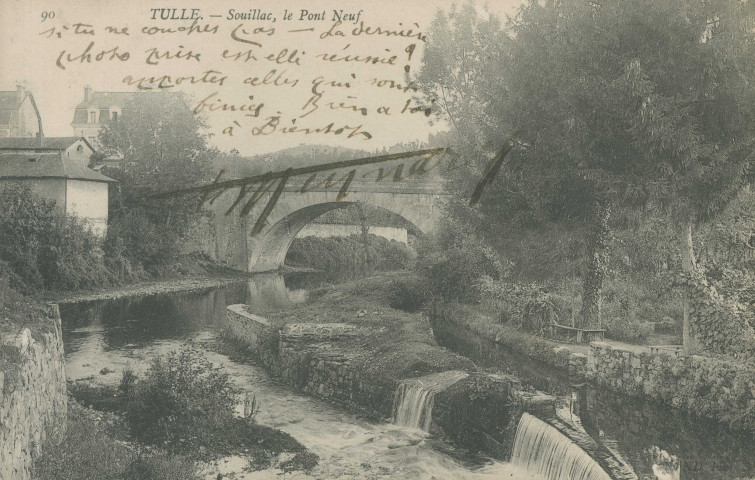 90 TULLE. — Souillac, le Pont Neuf
si tu ne couches pas — La dernière
photo prise est elle réussie?
apportes celles qui sont
finies. Bien a toi
à Bientot
Meynard